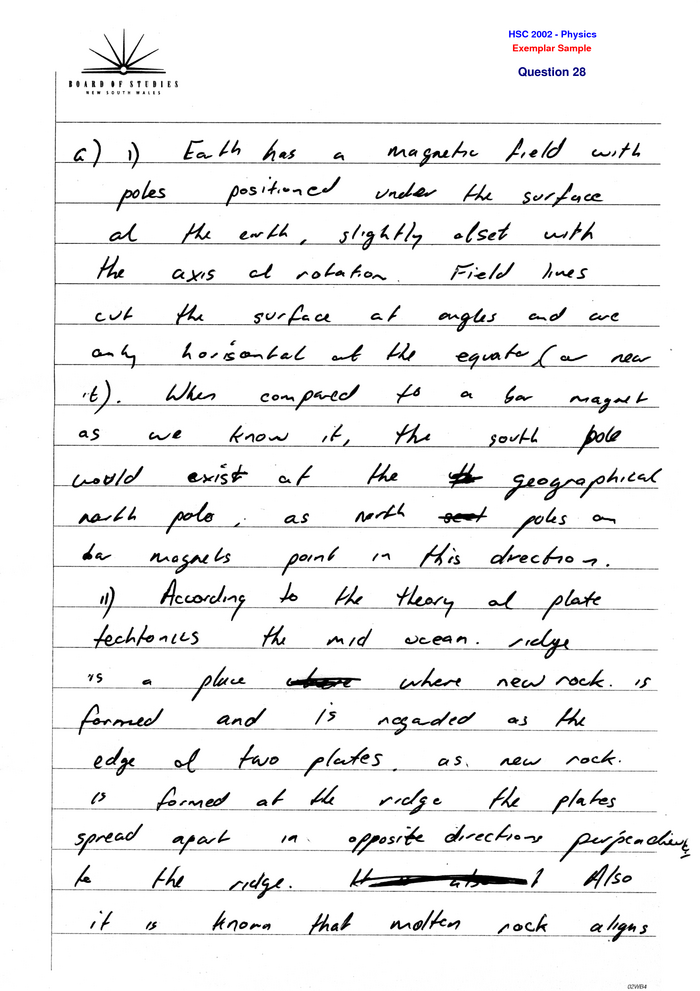 HSC 2002 - Physics
Exemplar Sample
Question 28
BOARD OF STUDIES
NEW SOUTH WALES
a) i) Earth has a magnetic field with
poles positioned under the surface
of the earth, slightly ofset with
the axis of rotation. Field lines
cut the surface at angles and are
only horisontal at the equator (or near
it). When compared to a bar magnet
as we know it, the south pole
would exist at the geographical
north pole, as north poles on
bar magnets point in this direction.
ii) According to the theory of plate
techtonics the mid ocean. ridge
is a place where new rock. is
formed and is regaded as the
edge of two plates. as. new rock.
is formed at the ridge the plates
spread apart in opposite directions
to the ridge. Also
it is known that molten rock aligns
02WB4